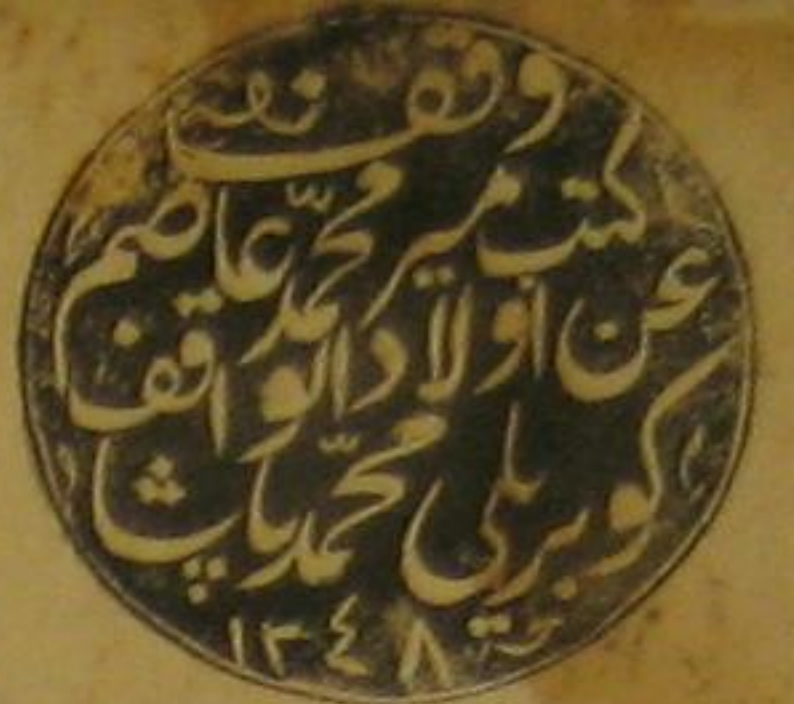 وقف نفيه
كتب مير محمد عاصم
عن اولاد الواقف
كوبريلى محمد پاشا
١٣٤٨